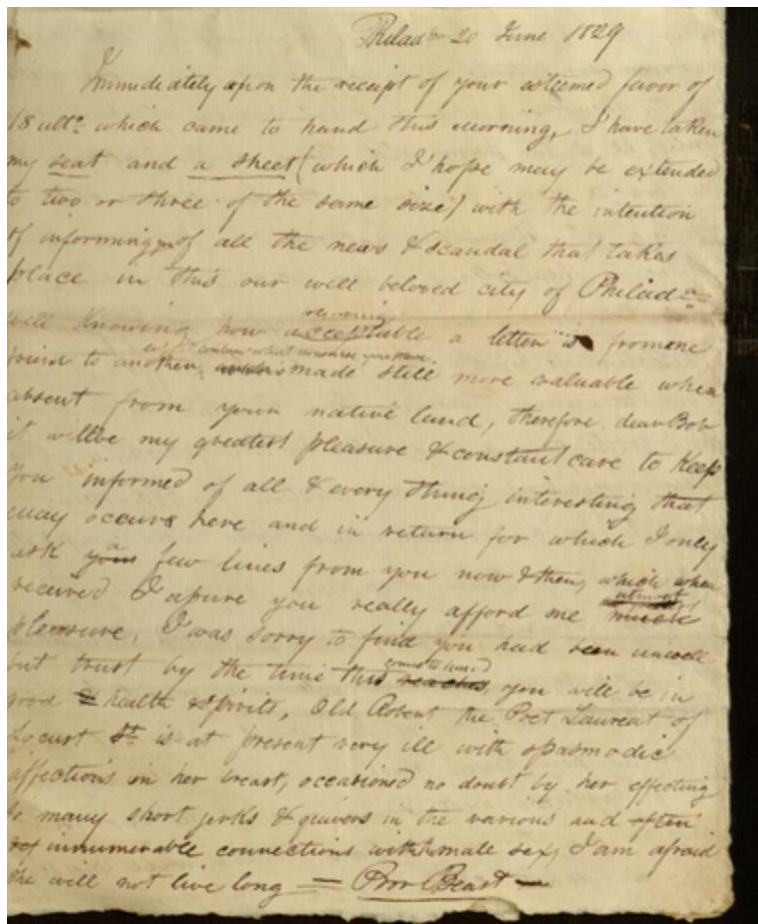 Philad.ª 20 June 1829
Immediately upon the receipt of your esteemed favor of
18 ulto. which came to hand this morning, I have taken
my seat and a sheet (which I hope may be extended
to two or three of the same size) with the intention
of informing you of all the news & scandal that takes
place in this our well beloved city of Philad.ª
well Knowing how acceptable a letter is from one
friend to another, made still more valuable when
absent from your native land, therefore dear Bob
it will be my greatest pleasure & constant care to Keep
You informed of all & every thing interesting that
may occur here and in return for which I only
ask a few lines from you now & then, which when
received I assure you really afford me utmost
pleasure. I was sorry to find you had been unwell
but trust by the time this comes to hand you will be in
good health & spirits, Old the Poet Laureat of
Locust St. is at present very ill with spasmodic
affections in her breast, occasioned no doubt by her effecting
so many short jerks & quivers in the various and often
innumerable connections with male sex, I am afraid
she will not live long = Poor Beast